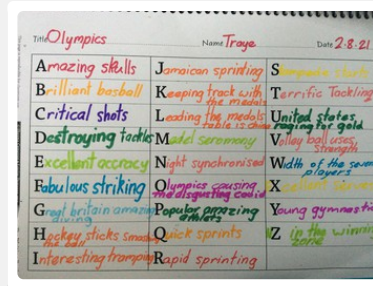 Title Olympics Name Traye Date 2.8.21
Amazing skills
Brilliant basball
Critical shots
Destroying tackles
Excellent accrocy
Fabulous striking
Great britain amazing
diving
Hockey sticks smashing
the ball
Interesting tramping
Jamaican sprinting
Keeping track with
the medals
Leading the medals
table is china
Medel seremony
Night synchronised
Olympics causing
the disgusting covid
Popular amazing
Quick sprints
Rapid sprinting
S
Terrific Tackling
United states
raging for gold
Volley ball uses
strength
Width of the seven
players
X
Young gymnastic
Z in the winning
zone